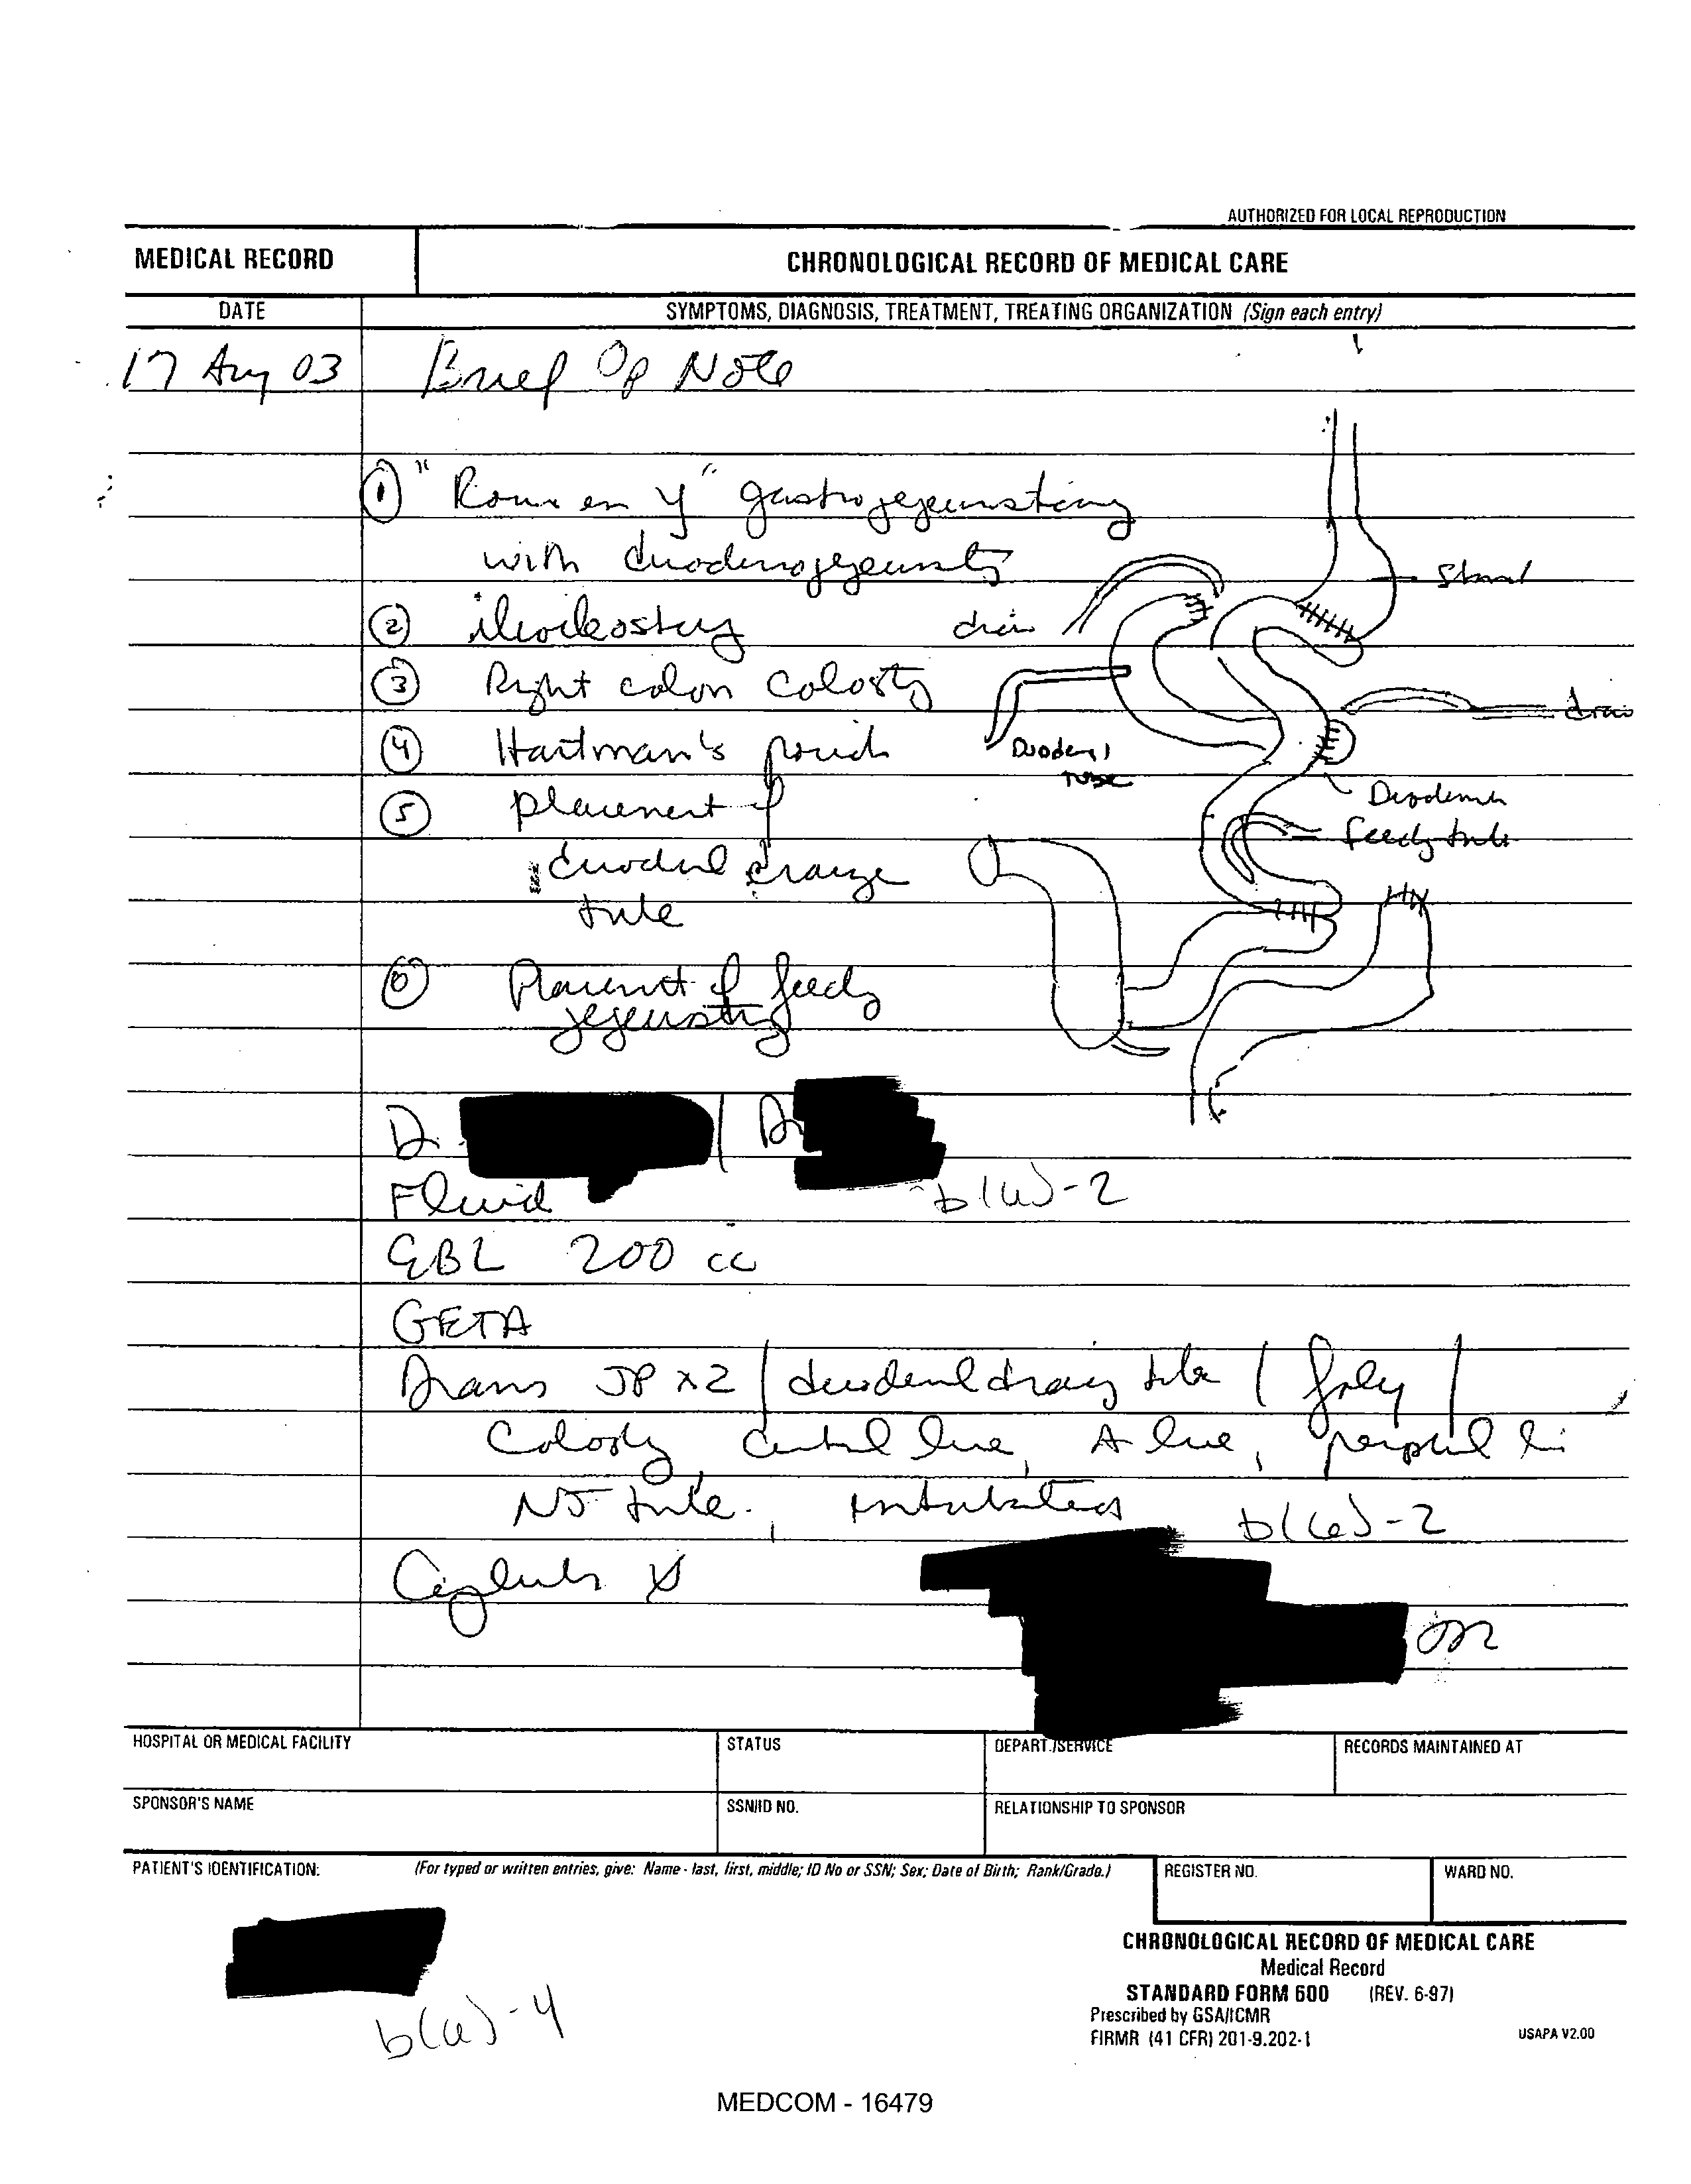 AUTHORIZED FOR LOCAL REPRODUCTION
MEDICAL RECORD
CHRONOLOGICAL RECORD OF MEDICAL CARE
DATE
SYMPTOMS, DIAGNOSIS, TREATMENT, TREATING ORGANIZATION (Sign each entry)
17 Aug 03 Brief Op Note
① "Roux en Y" gastrojejunostomy
with duodenojejunosty
② ileocolostomy
③ Right colon colosty
④ Hartman's pouch
⑤ placement of
duodenal drainage
tube
⑥ Placement of feedg
jejunostomy
drain
Duodenal
tube
drain
feedg tube
Dr. / Dr
Fluid
b(6)-2
EBL 200 cc
GETA
Drains JP x2 / duodenal drainage tube / foley /
Colosty, central line, A line, peripheral
NJ tube, intubated
b(6)-2
HOSPITAL OR MEDICAL FACILITY
STATUS
DEPART./SERVICE
RECORDS MAINTAINED AT
SPONSOR'S NAME
SSN/ID NO.
RELATIONSHIP TO SPONSOR
PATIENT'S IDENTIFICATION:
(For typed or written entries, give: Name - last, first, middle; ID No or SSN; Sex; Date of Birth; Rank/Grade.)
REGISTER NO.
WARD NO.
b(6)-4
CHRONOLOGICAL RECORD OF MEDICAL CARE
Medical Record
STANDARD FORM 600 (REV. 6-97)
Prescribed by GSA/ICMR
FIRMR (41 CFR) 201-9.202-1
USAPA V2.00
MEDCOM - 16479